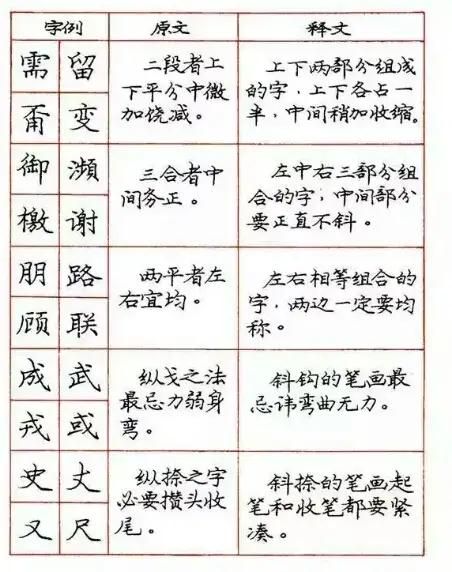 字例 原文 释文
需 留
二段者上
下平分中微
加饶减。
上下两部分组成
的字，上下各占一
半，中间稍加收缩。
甭 变
御 濒
三合者中
间务正。
左中右三部分组
合的字，中间部分
要正直不斜。
檄 谢
朋 路
两平者左
右宜均。
左右相等组合的
字，两边一定要均
称。
顾 联
成 武
纵戈之法
最忌力弱身
弯。
斜钩的笔画最
忌讳弯曲无力。
戎 或
史 丈
纵捺之字
必要攒头收
尾。
斜捺的笔画起
笔和收笔都要紧
凑。
又 尺